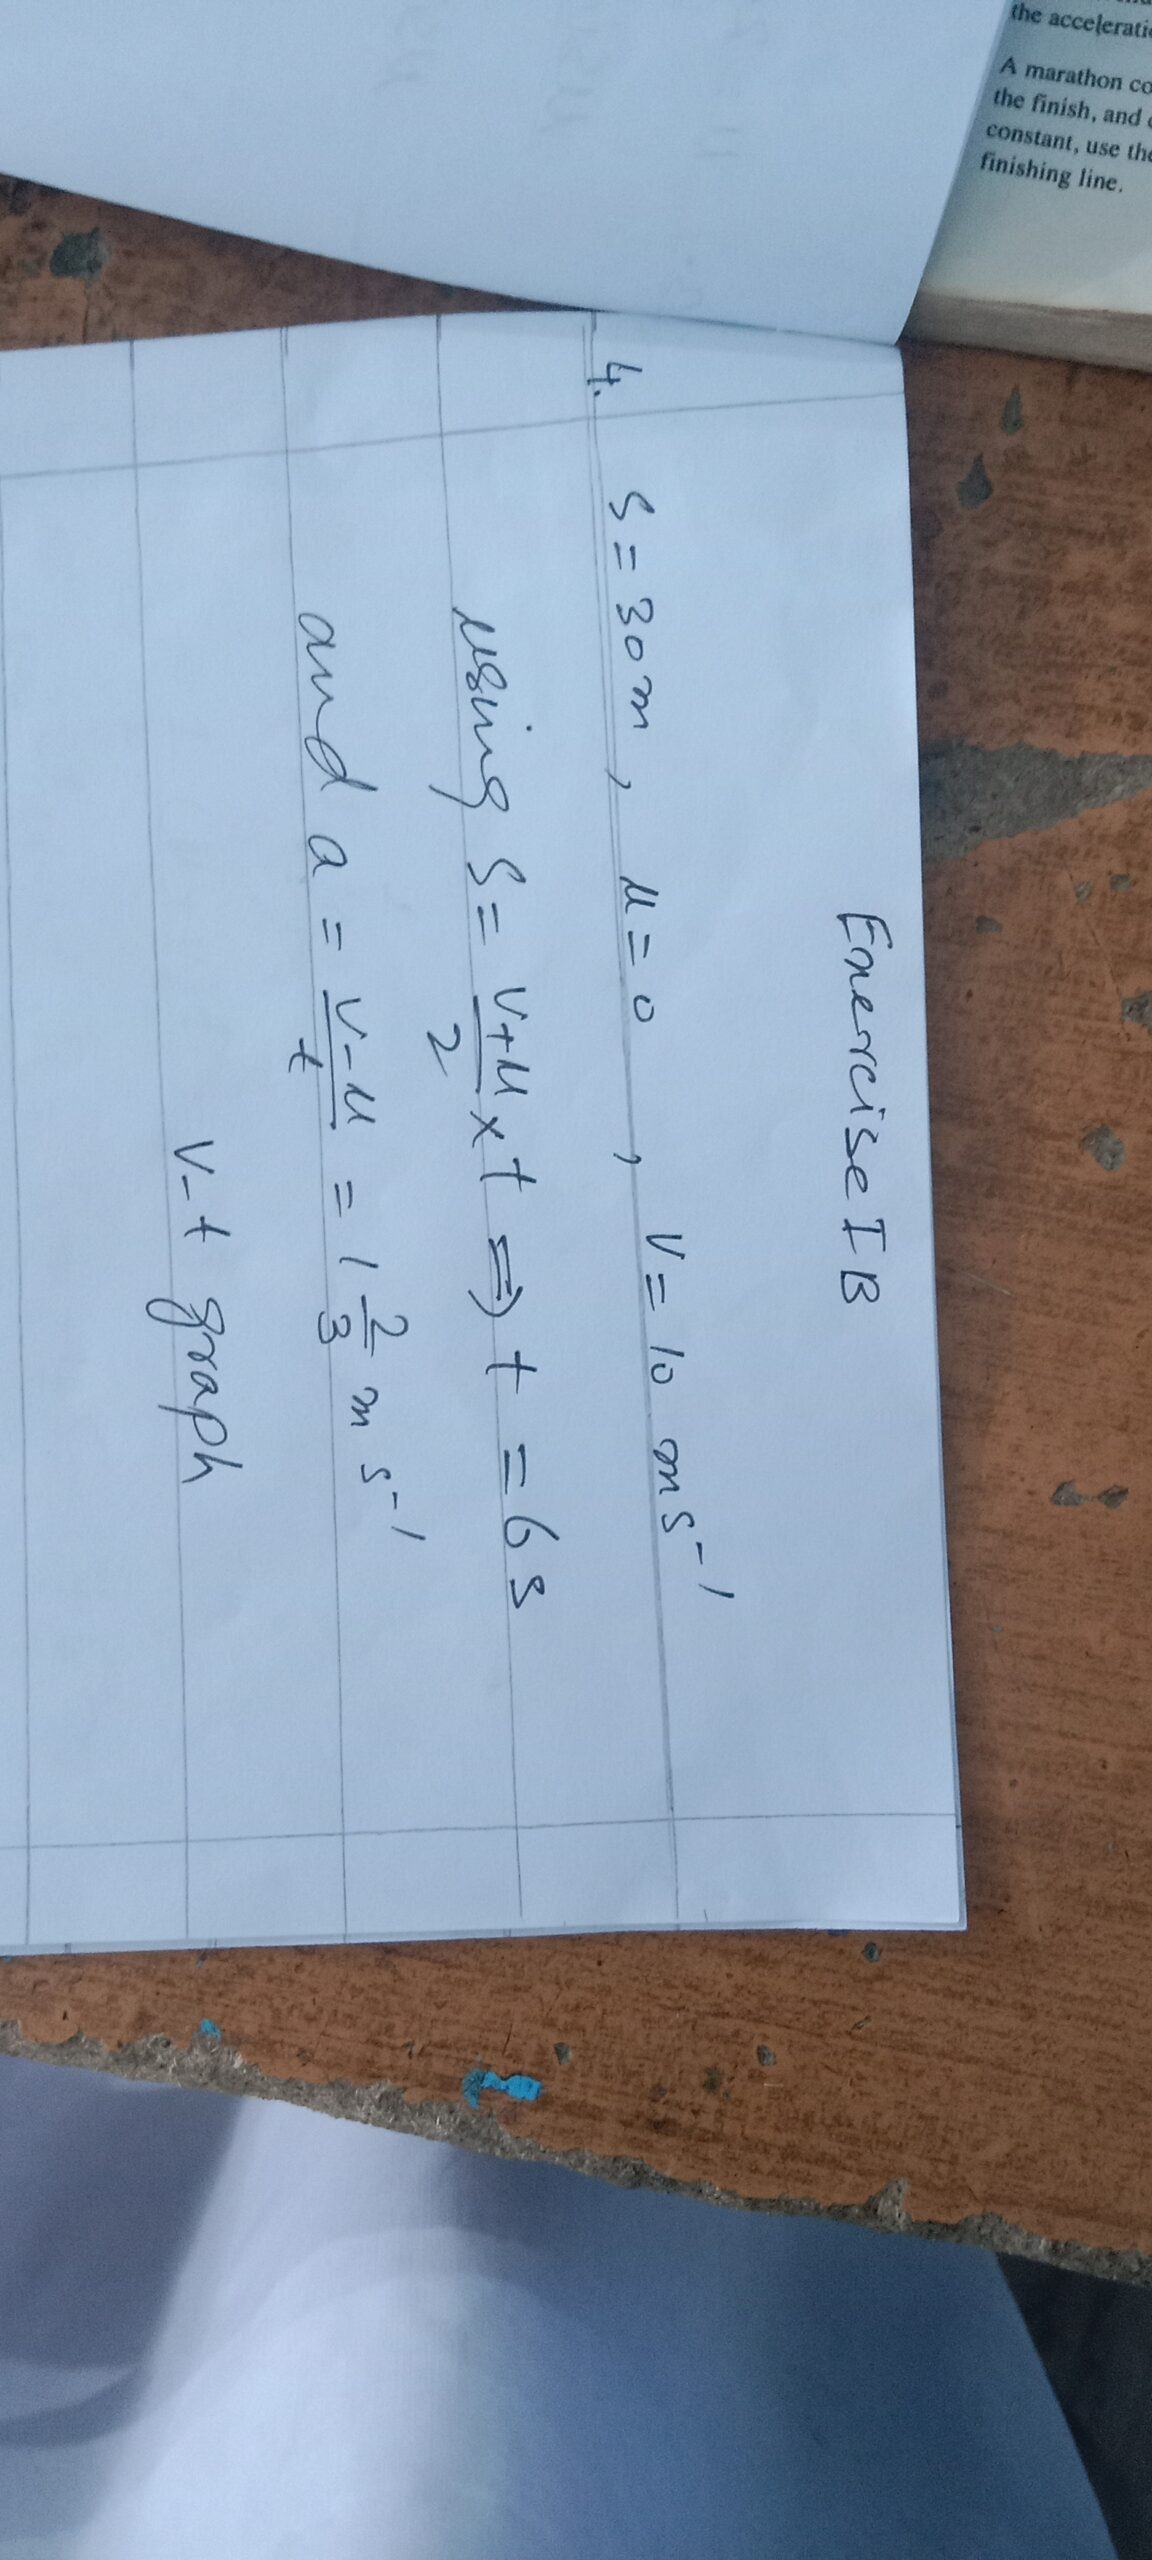 the accelerati
A marathon co
the finish, and
constant, use the
finishing line.
Exercise I B
4. s = 30 m , u = 0 , v = 10 m s⁻¹
using s = \frac{v+u}{2} × t ⇒ t = 6 s
and a = \frac{v-u}{t} = 1 \frac{2}{3} m s⁻¹
v-t graph